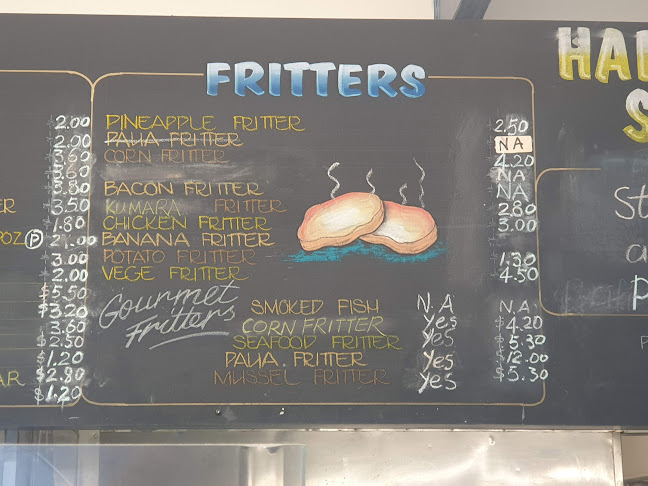 FRITTERS
HA
S
2.00 PINEAPPLE FRITTER 2.50
2.00 PAUA FRITTER NA
3.60 CORN FRITTER 4.20
3.60 NA
3.80 BACON FRITTER NA
3.50 KUMARA FRITTER 2.80
1.80 CHICKEN FRITTER 3.00
BANANA FRITTER
3.00 POTATO FRITTER 1.30
2.00 VEGE FRITTER 4.50
5.50
Gourmet
Fritters
$3.20 SMOKED FISH N.A N.A
3.60 CORN FRITTER Yes $4.20
$2.50 SEAFOOD FRITTER Yes $5.30
$1.20 PAUA FRITTER Yes $12.00
$2.80 MUSSEL FRITTER Yes $5.30
$1.20
ER
OZ P
AR
St
a
P